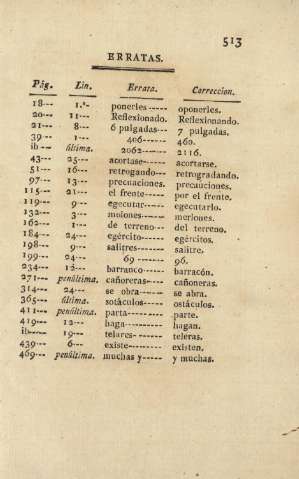 513
ERRATAS.
Pág. Lin. Errata. Correccion.
18--- 1.ª- ponerles----- oponerles.
20--- 11--- Reflexîonado. Reflexîonando.
21--- 8--- 6 pulgadas--- 7 pulgadas.
39--- 1--- 406------ 460.
ib--- última. 2062------- 2116.
43--- 25--- acortase----- acortarse.
51--- 16--- retrogando--- retrogradando.
97--- 13--- precuaciones. precauciones.
115--- 21--- el frente----- por el frente.
119--- 9--- egecutar----- egecutarlo.
132--- 3--- molones------ merlones.
162--- 1--- de terreno--- del terreno.
184--- 24--- egército----- egércitos.
198--- 9--- salitres------- salitre.
199--- 24--- 69 -------- 96.
234--- 12--- barranco----- barracón.
271--- penúltima. cañoreras---- cañoneras.
314--- 24--- se obra------- se abra.
365--- última. sotáculos----- ostáculos.
411--- penúltima. parta--------- parte.
419--- 12--- haga---------- hagan.
ib---- 19--- telares------- teleras.
439--- 6--- existe--------- existen.
469--- penúltima. muchas y----- y muchas.